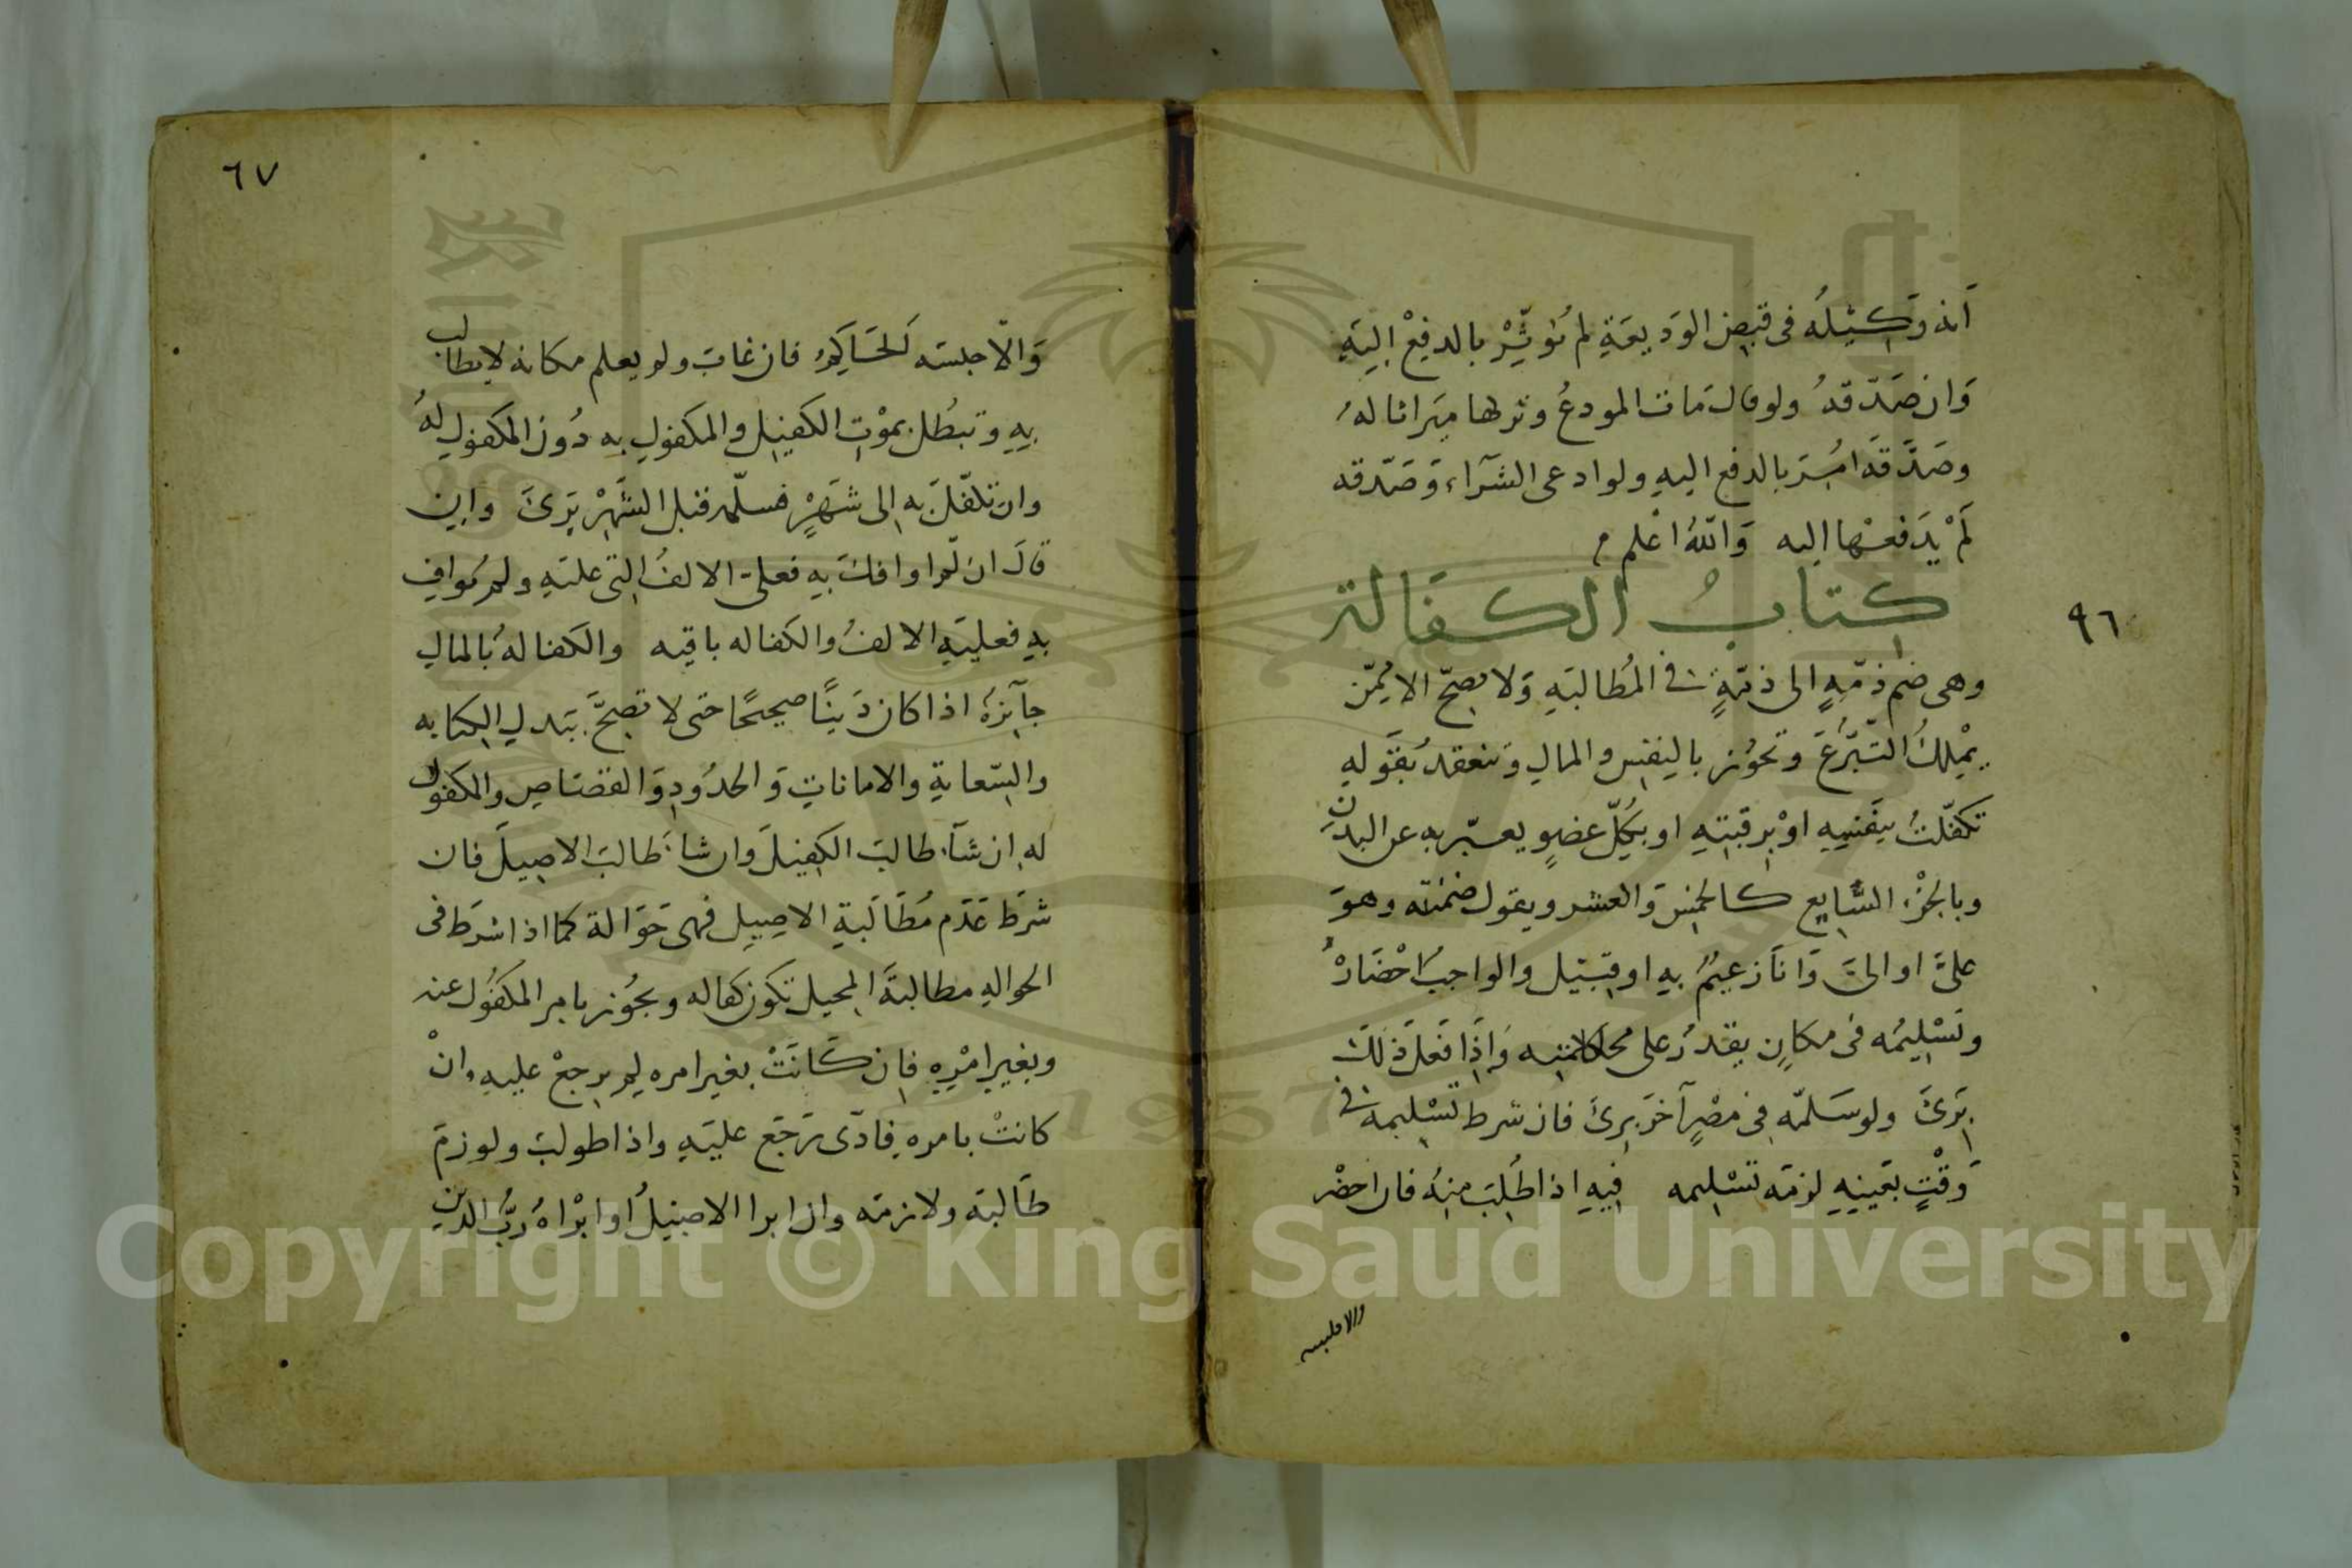 أنه وكيله فى قبض الوديعة لم يؤثر بالدفع اليه
وان صدقه ولو قال مات المودع وتركها ميراثا له
وصدقه امر بالدفع اليه ولو ادعى الشراء وصدقه
لم يدفعها اليه والله اعلم
كتاب الكفالة
٩٦
وهى ضم ذمة الى ذمة فى المطالبة ولا تصح الا ممن
يملك التبرع وتجوز بالنفس والمال وتنعقد بقوله
تكفلت بنفسه او برقبته او بكل عضو يعبر به عن البدن
وبالجزء الشايع كالخمس والعشر ويقول ضمنته وهو
على او الى وانا زعيم به او قبيل والواجب احضاره
وتسليمه فى مكان يقدر على محاكمته واذا فعل ذلك
برئ ولو سلمه فى مصر آخر برئ فان شرط تسليمه فى
وقت بعينه لزمه تسليمه فيه اذا طلب منه فان احضر
والا حبسه
٦٧
والا حبسه الحاكم فان غاب ولم يعلم مكانه لا يطالب
به وتبطل بموت الكفيل والمكفول به دون المكفول له
وان تكفل به الى شهر فسلمه قبل الشهر برئ وان
قال ان لم اوافك به فعلى الالف التى عليه ولم يواف
به فعليه الالف والكفاله باقيه والكفالة بالمال
جآيزة اذا كان دينا صحيحا حتى لا تصح ببدل الكتابه
والسعاية والامانات والحدود والقصاص والمكفول
له ان شآء طالب الكفيل وان شاء طالب الاصيل فان
شرط عدم مطالبة الاصيل فهى حوالة كما اذا شرط فى
الحواله مطالبة المحيل تكون كفاله وبجوز بامر المكفول عنه
وبغير امره فان كانت بغير امره لم يرجع عليه وان
كانت بامره فادى رجع عليه واذا طولب ولوزم
طالبه ولازمه وان ابرا الاصيل او ابراه رب الدين
Copyright © King Saud University
1957